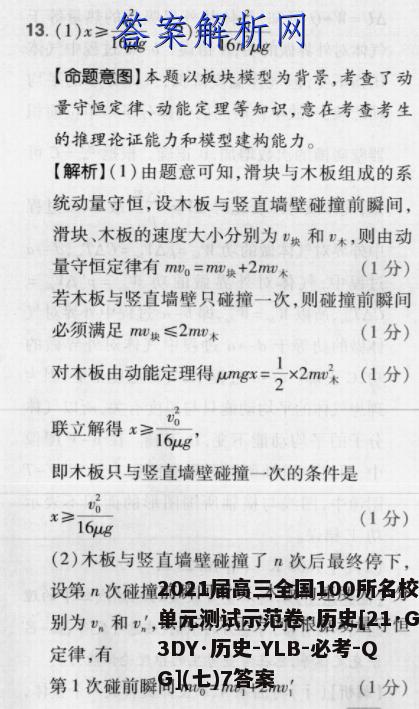 答案解析网
13. (1) x≥ v₀²/16μg
16n²μg
【命题意图】本题以板块模型为背景,考查了动
量守恒定律、动能定理等知识,意在考查考生
的推理论证能力和模型建构能力。
【解析】(1)由题意可知,滑块与木板组成的系
统动量守恒,设木板与竖直墙壁碰撞前瞬间,
滑块、木板的速度大小分别为 v块 和 v木,则由动
量守恒定律有 mv₀=mv块+2mv木 (1分)
若木板与竖直墙壁只碰撞一次,则碰撞前瞬间
必须满足 mv块≤2mv木 (1分)
对木板由动能定理得 μmgx=1/2×2mv²木 (1分)
联立解得 x≥v₀²/16μg,
即木板只与竖直墙壁碰撞一次的条件是
x≥v₀²/16μg (1分)
(2)木板与竖直墙壁碰撞了 n 次后最终停下,
设第 n 次碰撞前瞬间
别为 vₙ 和 vₙ′,
定律,有
第1次碰撞前瞬间 mv₀ 2mv₁′ (1分)
2021届高三全国100所名校
单元测试示范卷·历史[21·G
3DY·历史-YLB-必考-Q
G](七)7答案